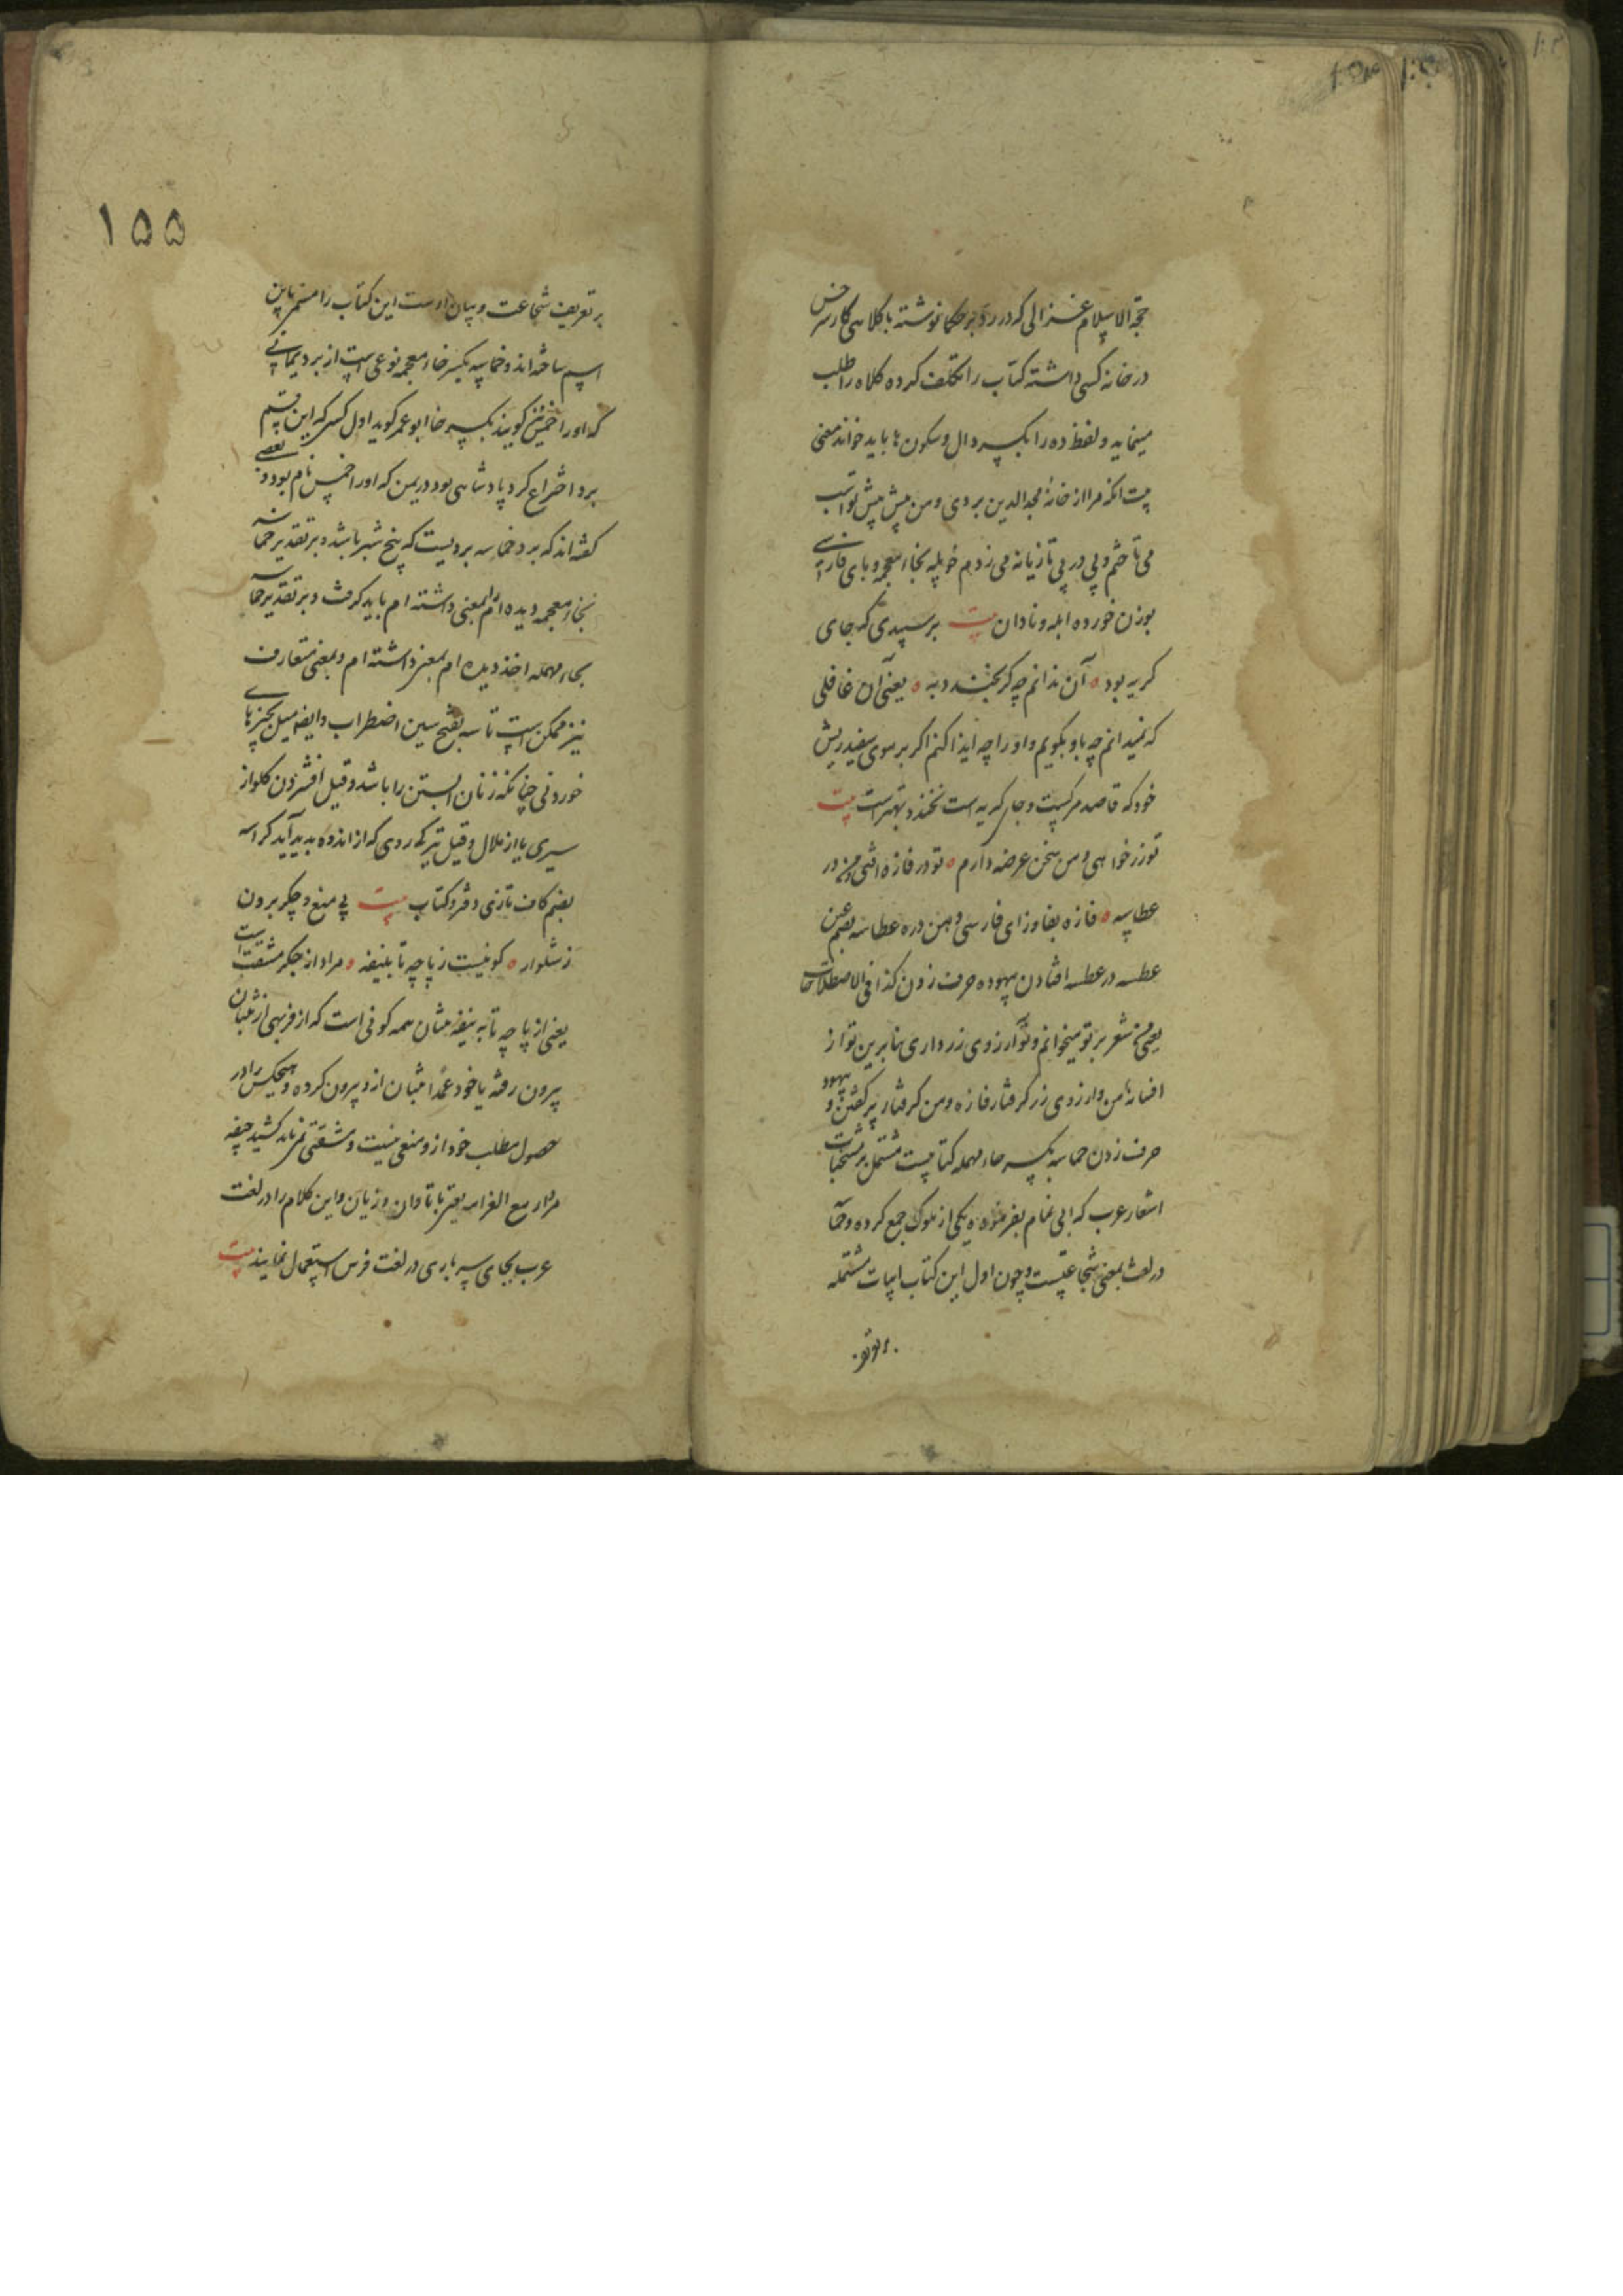 حجة الاسلام غزالی که در رد حکما نوشته با کلاهی کار سرخس
در خانه کسی داشته کتاب را تکلف کرده کلاه را طلب
مینماید و لفظ ده را بکسر دال و سکون ها باید خواند معنی
بیت انکه مرا از خانه مجدالدین بردی و من پیش پیش تو اسب
می تاختم و پی در پی تازیانه می زدم خویله بخاء معجمه و بای فارسی
بوزن خورده ابله و نادان بیت بر سپیدی که جای
گریه بود ه آن ندانم چه گر بخندد به ه یعنی آن غافلی
که نمیدانم چه باو بگویم و او را چه ایذا کنم اگر بر موی سفید ریش
خود که قاصد مرگست و جای گریه است نخندد بهتر است بیت
تو زر خواهی و من سخن عرضه دارم ه تو در فازه افتی و من در
عطاسه ه فازه بفا و زای فارسی دهن دره عطاسه بضم عین
عطسه در عطسه افتادن بیهوده حرف زدن کذا فی الاصطلاحات
یعنی من شعر بر تو میخوانم و تو آرزوی زر داری بنابرین تو از
افسانه من و آرزوی زر گرفتار فازه و من گرفتار پر گفتن و بیهوده
حرف زدن حماسه بکسر حاء مهمله کتابیست مشتمل بر منتخبات
اشعار عرب که ابی تمام بفرموده یکی از ملوک جمع کرده و حماسه
در لغت بمعنی شجاعتیست و چون اول این کتاب ابیات مشتمله
بر تعریف
۱۵۵
بر تعریف شجاعت و بیان اوست این کتاب را مسمی باین
اسم ساخته اند و خماسه بکسر خاء معجمه نوعی است از برد یمانی
که او را خمیس گویند بکسر خا ابو عمر گوید اول کسی که این قسم
برد اختراع کرد پادشاهی بود در یمن که او را خمس نام بود و بعضی
گفته اند که برد خماسه بردیست که پنج شبر باشد و بر تقدیر خماسه
بخاء معجمه دیده ام را بمعنی داشته ام باید گرفت و بر تقدیر حماسه
بحاء مهمله اخذ دیده ام بمعنی داشته ام و بمعنی متعارف
نیز ممکن است تاسه بفتح سین اضطراب و ایضا میل بچیزهای
خوردنی چنانکه زنان آبستن را باشد و قیل افشردن گلو از
سیری یا از ملال و قیل تیرگی روی که از اندوه پدید آید کراسه
بضم کاف تازی دفتر و کتاب بیت بی منع و جگر برون
ز شلوار ه کونیست ز پاچه تا بنیفه ه مراد از جگر مشقت است
یعنی از پاچه تا به نیفه شان همه کونی است که از فربهی از تنبان
بیرون رفته یا خود عمدا تنبان ازو بیرون کرده و هیچکس را در
حصول مطلب خود ازو منعی نیست و مشقتی نمی باید کشید جیفه
مردار مع الغرامه یعنی با تاوان و زیان و این کلام را در لغت
عرب بجای سرباری در لغت فرس استعمال نمایند بیت